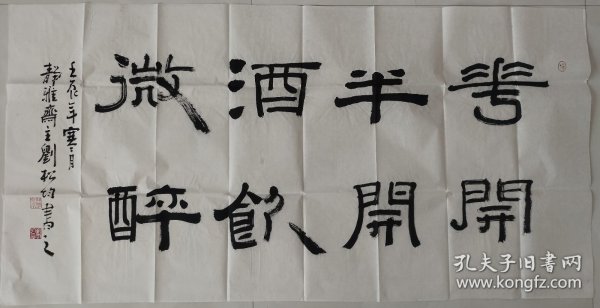 花開
半開
酒飲
微醉
壬辰年寒月
靜雅齋主劉松均書之
孔夫子旧书网
kongfz.com